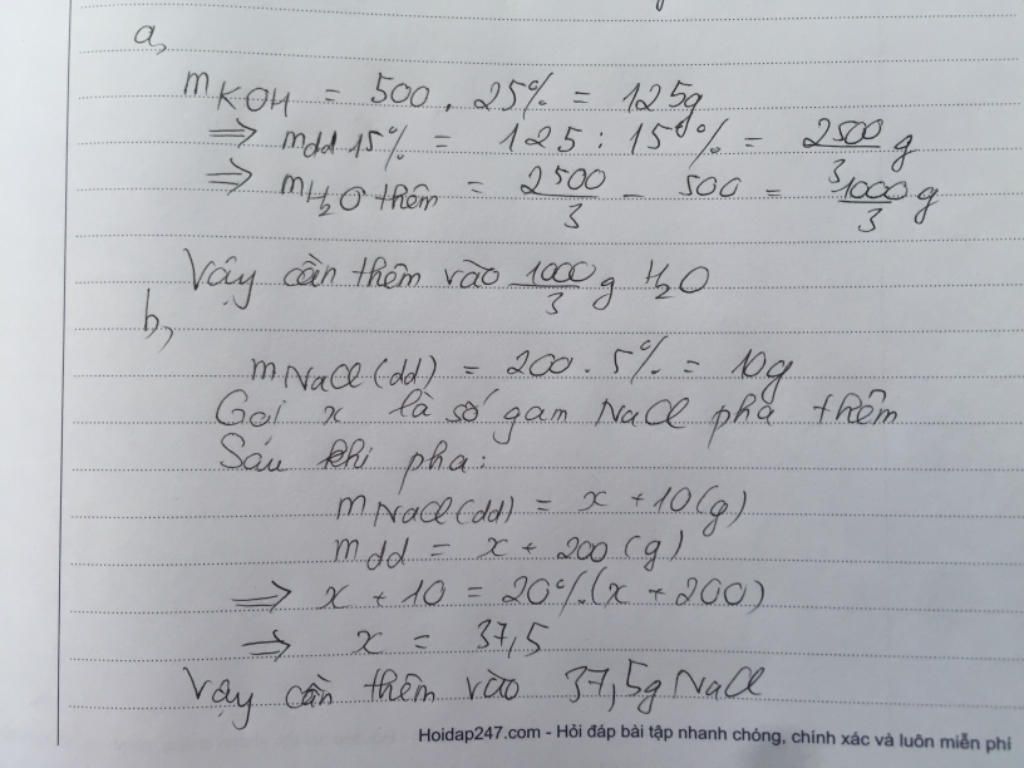 a,
mKOH = 500 . 25% = 125g
⇒ mdd 15% = 125 : 15% = 2500/3 g
⇒ mH2O thêm = 2500/3 - 500 = 1000/3 g
Vậy cần thêm vào 1000/3 g H2O
b,
mNaCl(dd) = 200 . 5% = 10g
Gọi x là số gam NaCl pha thêm
Sau khi pha:
mNaCl(dd) = x + 10 (g)
mdd = x + 200 (g)
⇒ x + 10 = 20%.(x + 200)
⇒ x = 37,5
Vậy cần thêm vào 37,5g NaCl
Hoidap247.com - Hỏi đáp bài tập nhanh chóng, chính xác và luôn miễn phí